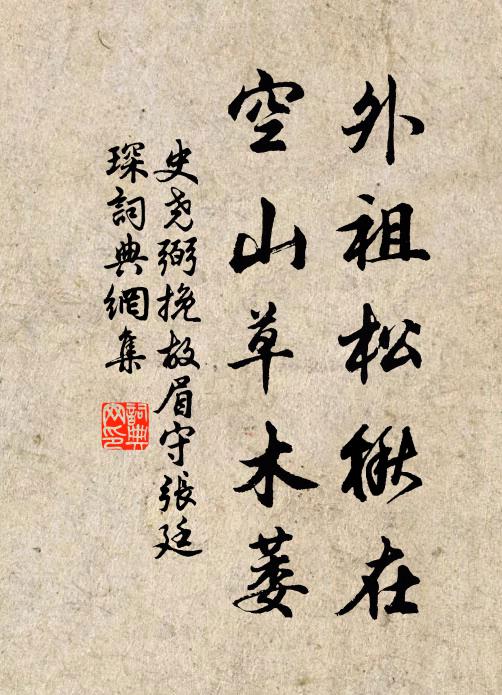 外祖松楸在
空山草木萎
史尧弼挽故眉守張廷
琛詞典網集
詞典网印